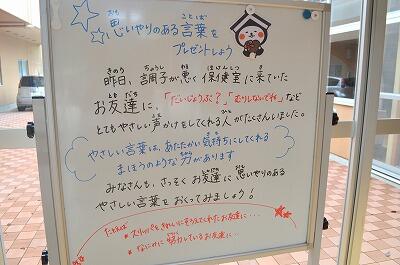 思いやりのある言葉を
プレゼントしよう
昨日、調子が悪く保健室に来ていた
お友達に、「だいじょうぶ？」「むりしないでね」など
とてもやさしい声かけをしてくれる人がたくさんいました。
やさしい言葉は、あたたかい気持ちにしてくれる
まほうのような力があります
みなさんも、さっそくお友達に思いやりのある
やさしい言葉をおくってみましょう！
たとえば
*スリッパをきれいにそろえてくれたお友達に・・・
*なにかに努力しているお友達に・・